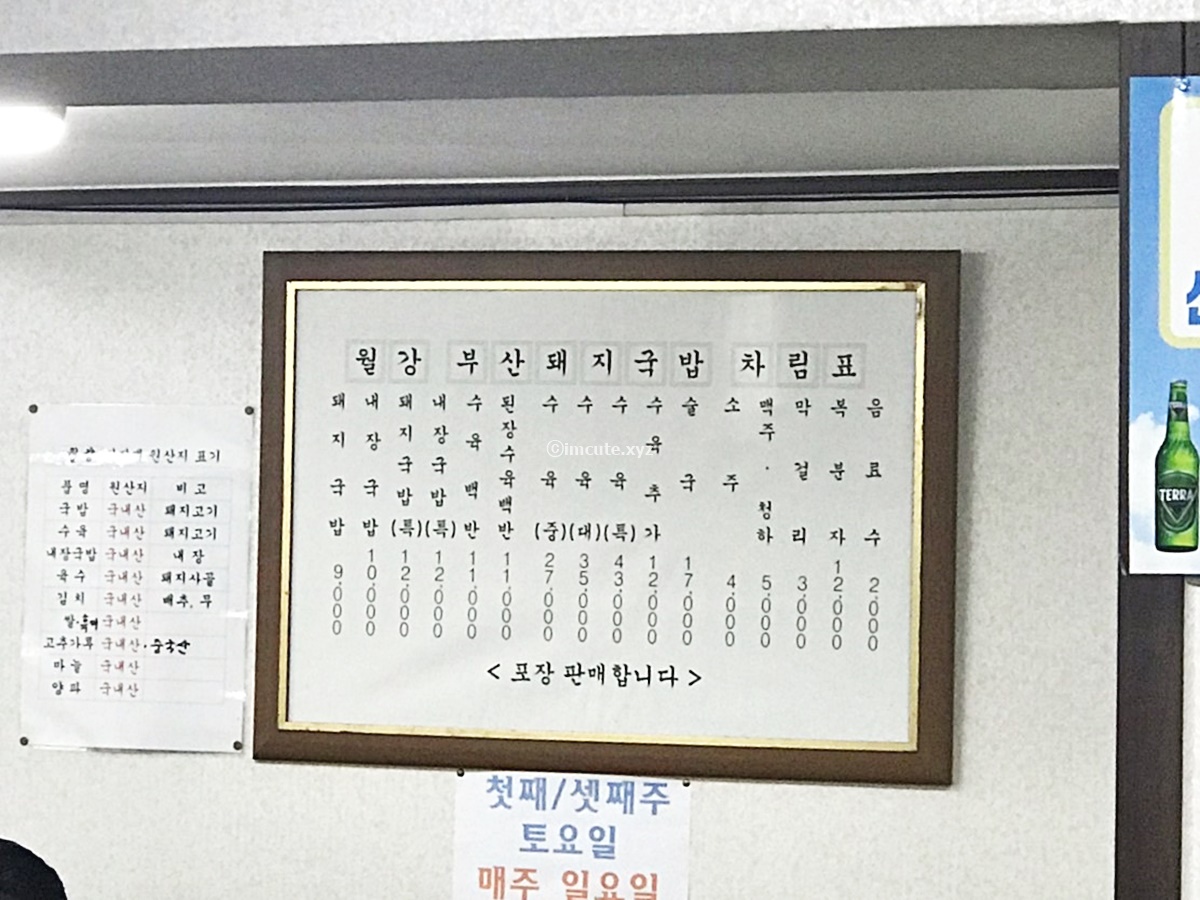 월강 부산돼지국밥 차림표
돼지국밥 9,000
내장국밥 10,000
돼지국밥(특) 12,000
내장국밥(특) 12,000
수육백반 11,000
된장수육백반 11,000
수육(중) 27,000
수육(대) 35,000
수육(특) 43,000
수육추가 12,000
술국 17,000
소주 4,000
맥주·청하 5,000
막걸리 3,000
복분자 12,000
음료수 2,000
< 포장 판매합니다 >
원산지 표기
품명 원산지 비고
국밥 국내산 돼지고기
수육 국내산 돼지고기
내장국밥 국내산 내장
육수 국내산 돼지사골
김치 국내산 배추, 무
쌀· 국내산
고추가루 국내산·중국산
마늘 국내산
양파 국내산
첫째/셋째주
토요일
매주 일요일
TERRA
©imcute.xyz